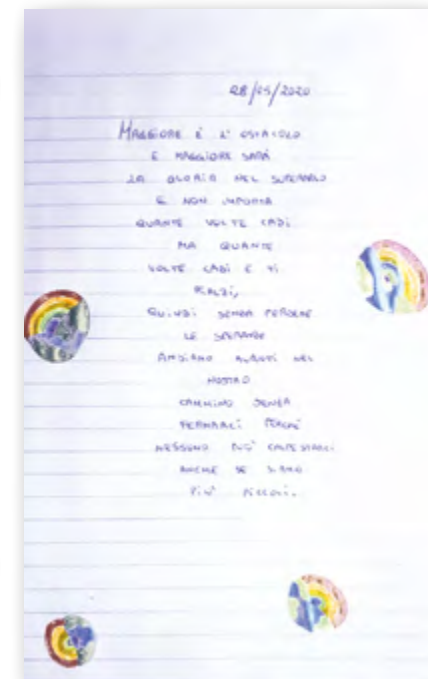 28/05/2020
MAGGIORE È L'OSTACOLO
E MAGGIORE SARÀ
LA GLORIA NEL SUPERARLO
E NON IMPORTA
QUANTE VOLTE CADI
MA QUANTE
VOLTE CADI E TI
RIALZI,
QUINDI SENZA PERDERE
LE SPERANZE
ANDIAMO AVANTI NEL
NOSTRO
CAMMINO SENZA
FERMARCI PERCHÉ
NESSUNO PUÒ CALPESTARCI
ANCHE SE SIAMO
PIÙ PICCOLI.